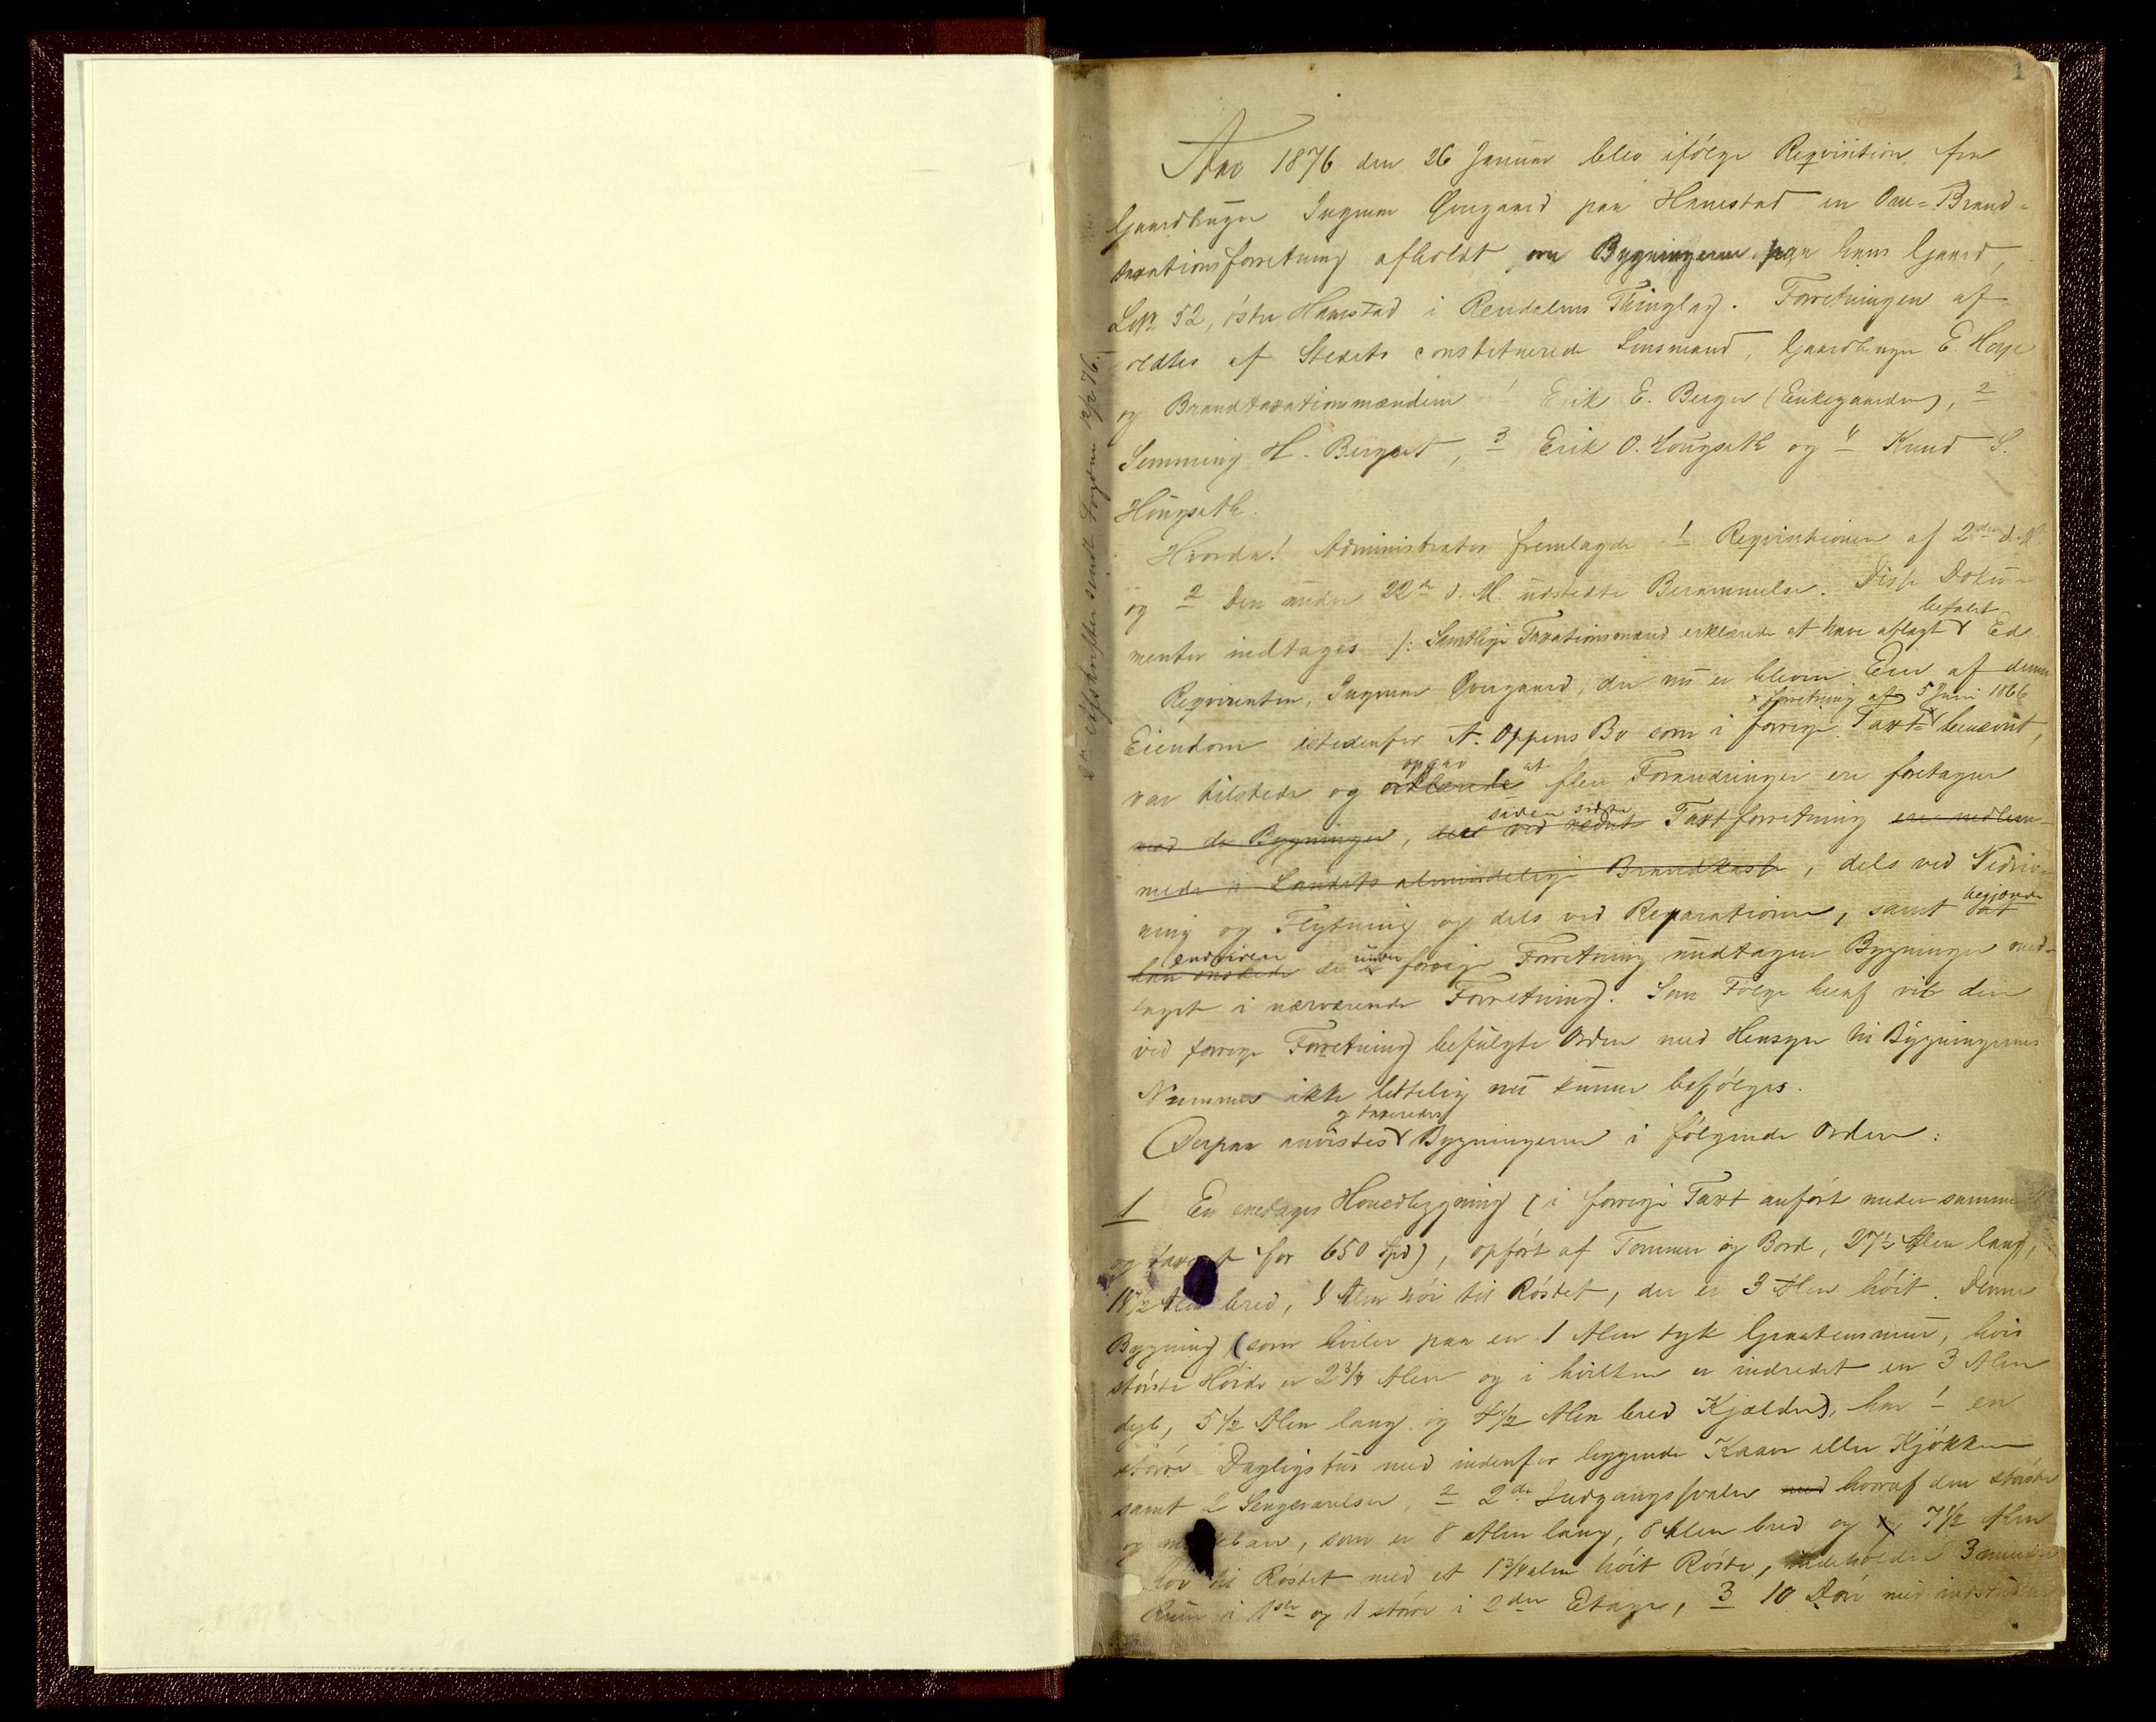 1
Aar 1876 den 26 Januar blev ifölge Reqvisition fra
Gaardbruger Ingmar Øvergaard paa Hanestad en Om-Brand-
taxationsforretning afholdt over Bygningerne paa hans Gaard,
LNr 52, östre Hanestad i Rendalens Thinglag. Forretningen af-
oldtes af Stedets constituerede Lensmand, Gaardbruger E. Horje
og Brandtaxationsmændene 1 Erik E. Berger (Enkegaarden), 2
Semming H. Berget, 3 Erik O. Hougseth og 4 Knud S.
Hougseth.
Hvorda! Administrator fremlagde 1 Reqvisitionen af 2den d. M.
og 2 Den under 22de d. M. udstedte Berammelse. Disse Doku-
menter indtages /: Samtlige Taxationsmænd erklærede at have aflagt befalet Ed.
Reqvirenten, Ingmar Øvergaard, der nu er bleven Eier af denne
Eiendom istedenfor A. Oppens Bo som i forrige Taxt- forretning af 5 Juni 1866 benævnt,
var tilstede og erklærede opgav at flere Forandringer ere foretagne
med de Bygninger, der ved sidste siden sidste Taxtforretning ere indlem-
mede i Landets almindelige Brandkasse, dels ved Nedriv-
ning og Flytning og dels ved Reparationer, samt at begjærede
han önskede endvidere de under forrige Forretning undtagne Bygninger med-
taget i nærværende Forretning. Som Fölge heraf vil den
ved forrige Forretning befulgte Orden med Hensyn til Bygningernes
Nummer ikke lettelig nu kunne befölges.
Derpaa anvistes og taxeredes Bygningerne i fölgende Orden:
1 En enetages Hovedbygning (i forrige Taxt anfört under samme
og taxeret for 650 Spd), opfört af Tømmer og Bord, 27½ Alen lang,
Alen bred, 8 Alen höi til Röstet, der er 3 Alen höit. Denne
Bygning (som hviler paa en 1 Alen tyk Graastensmur, hvis
störste Höide er 2¾ Alen og i hvilken er indredet en 3 Alen
dyb, 5½ Alen lang og 4½ Alen bred Kjælder), har 1 en
större Dagligstue med indenfor liggende Kaave eller Kjökken
samt 2 Sengeværelser, 2 2de Indgangssvaler med hvoraf den störste
og , som er 8 Alen lang, 6 Alen bred og 7½ Alen
höi til Röstet med et 1¾ Alen höit Röste, indeholder 3 mindre
Rum i 1ste og 1 större i 2den Etage, 3 10 Döre med
2de Afskrifter sendt Fogden 12/2 76.